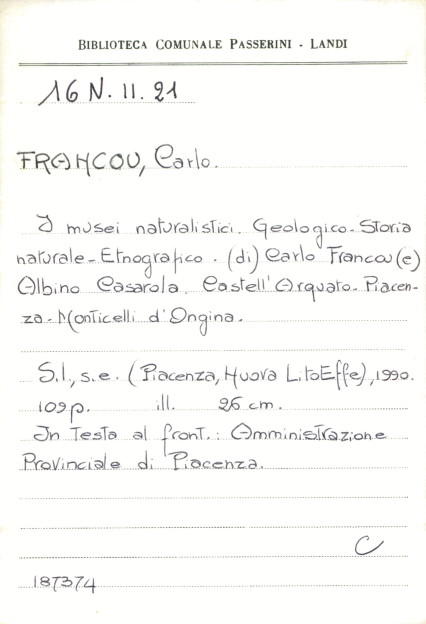 BIBLIOTECA COMUNALE PASSERINI - LANDI
16 N. II. 21
FRANCOU, Carlo.
I musei naturalistici. Geologico-Storia
naturale-Etnografico. (di) Carlo Francou (e)
Albino Casarola. Castell'Arquato-Piacen-
za-Monticelli d'Ongina.
S.l., s.e. (Piacenza, Nuova LitoEffe), 1990.
109p. ill. 26 cm.
In testa al front.: Amministrazione
Provinciale di Piacenza.
C
187374